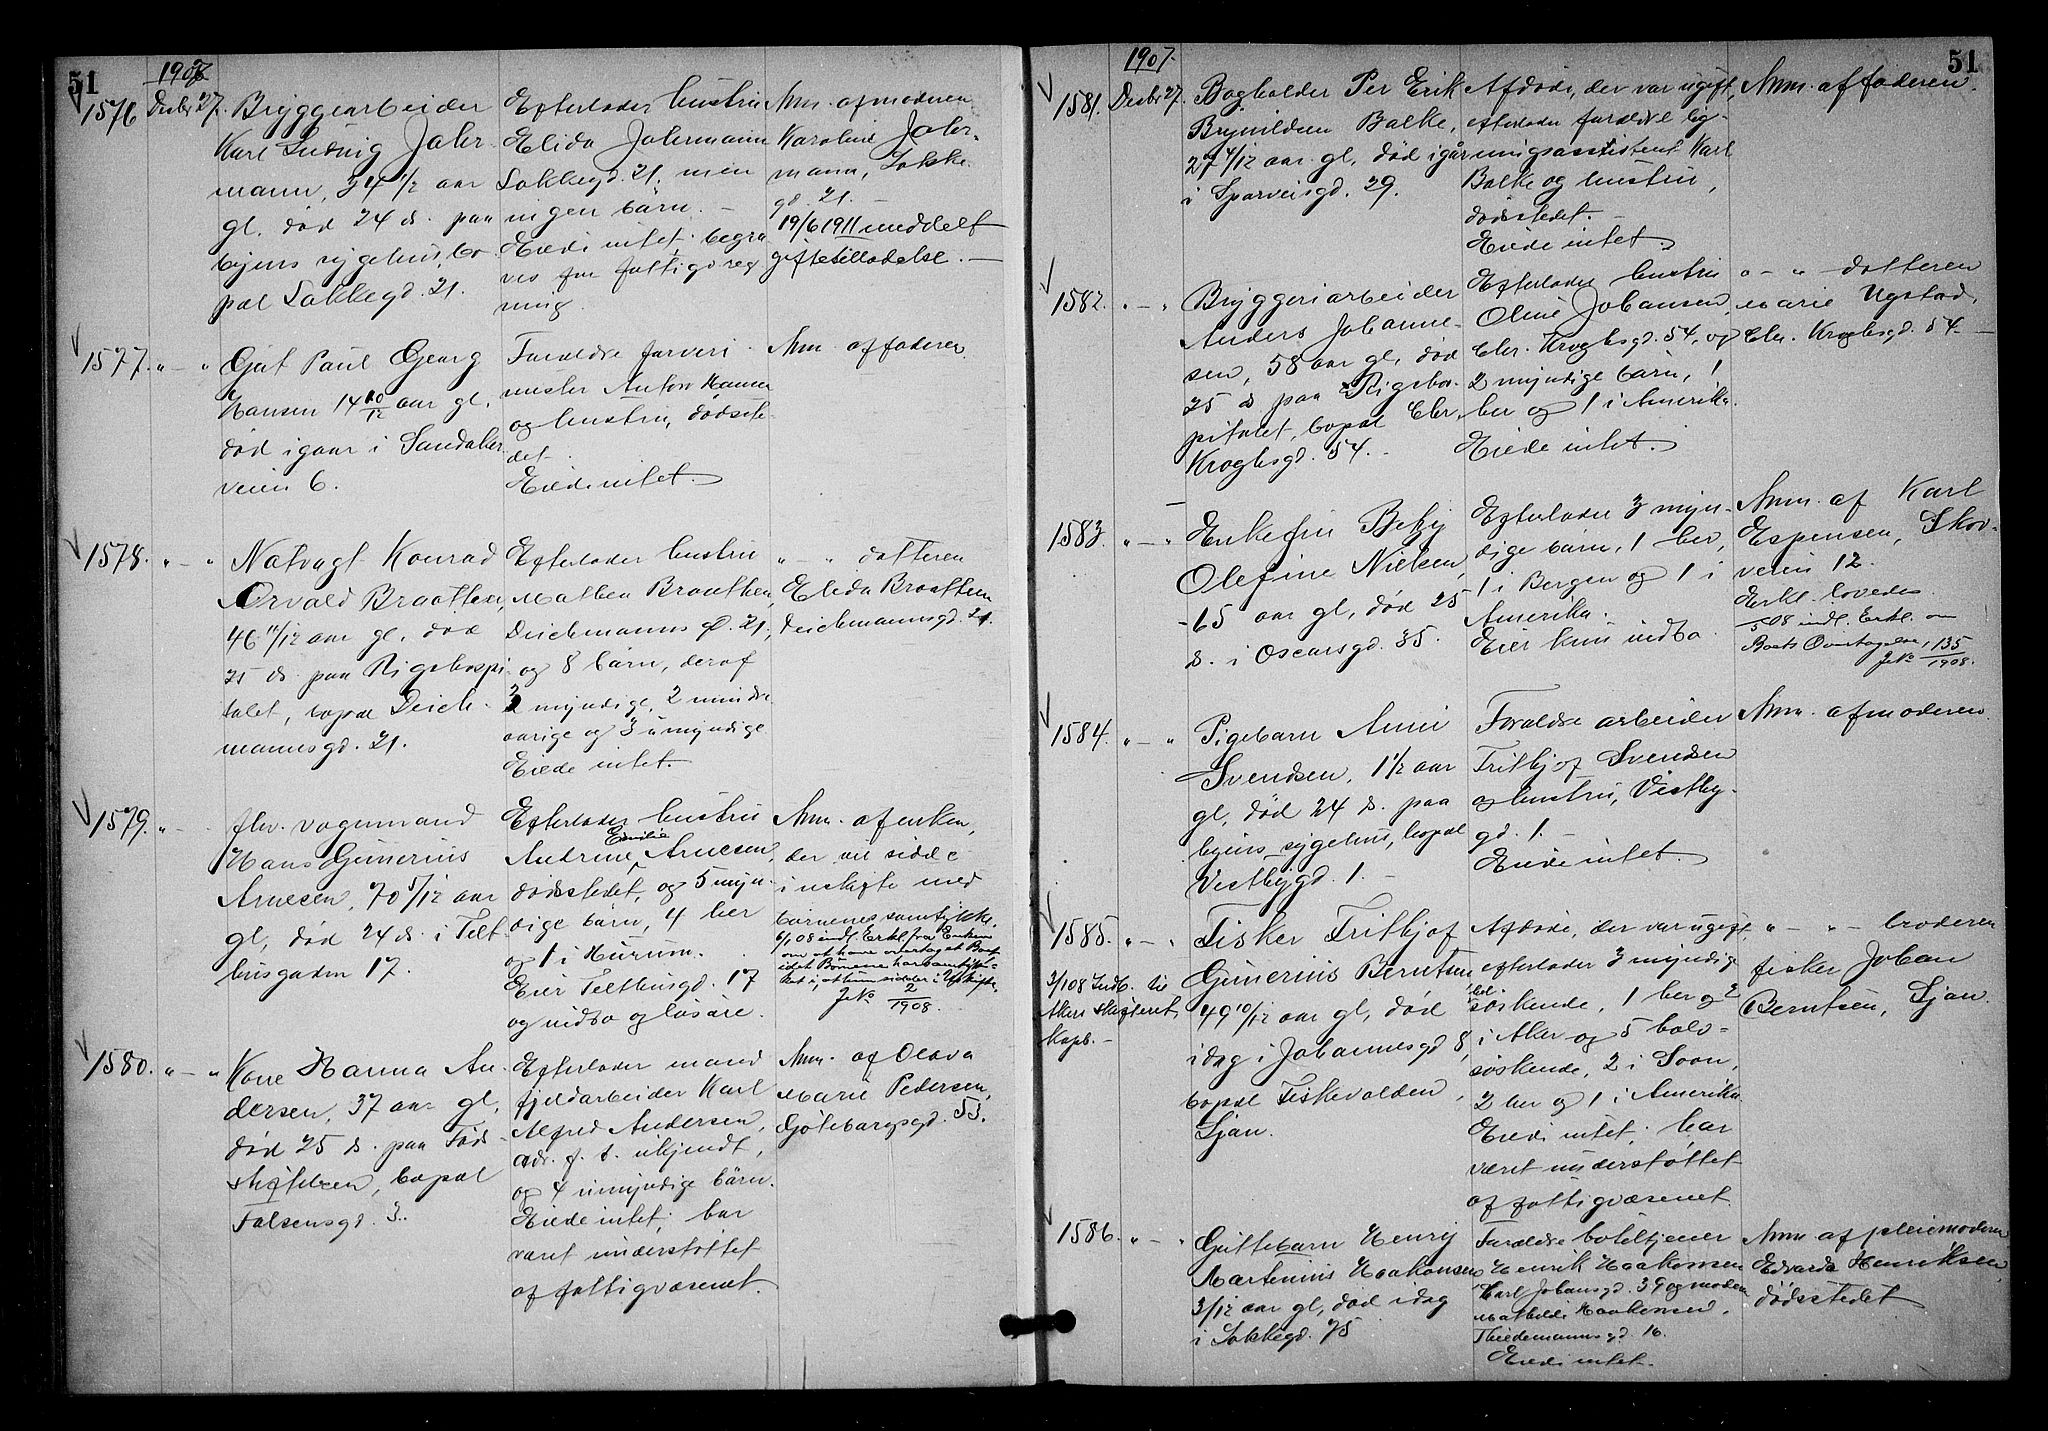 51
1907
1576
Desbr 27.
Bryggearbeider
Karl Ludvig Jahr-
mann, 34 1/2 aar
gl, død 24 ds. paa
byens sygehus, bo-
pæl Lakkegd. 21.
Efterlader hustru
Elida Jahrmann
Lakkegd. 21, men
ingen børn. —
Eiede intet; begra-
ves for fattigdsreg
ning.
Anm. af moderen
Karoline Jahr-
mann, Lakke-
gd. 21. —
19/6 1911 meddelt
giftetilladelse. —
1577. " — "
Gut Paul Georg
Hansen 14 10/12 aar gl,
død igaar i Sandaker
veien 6.
Forældre farveri-
mester Anton Hansen
og hustru, dødsste-
det.
Eiede intet.
Anm. af faderen
1578. " — "
Natvagt Konrad
Orvald Braathen,
46 11/12 aar gl, død
25 ds. paa Rigshospi-
talet, bopæl Deich-
mannsgd. 21.
Efterlader hustru
Mathea Braathen,
Deichmanns gd. 21,
og 8 børn, deraf
3 myndige, 2 mindre-
aarige og 3 umyndige
Eiede intet.
" — " datteren
Elida Braathen
Deichmannsgd. 21.
1579. " —
fhv. vognmand
Hans Gunerius
Arnesen, 70 5/12 aar
gl, død 24 ds. i Telt-
husgaden 17.
Efterlader hustru
Andrine Emilie Arnesen,
dødsstedet, og 5 myn-
dige børn, 4 her
og 1 i Hurum.
Eier Telthusgd. 17
og indbo og løsøre.
Anm. af enken,
der vil sidde
i uskifte med
børnenes samtykke.
6/1 08 indl. Erkl. fra Enken
om at have overtaget Boet
idet Børnene har samtyk-
ket i, at hun sidder i Uskifte.
JNo 2/1908.
1580. " — "
Kone Hanna An-
dersen, 37 aar gl,
død 25 ds. paa Føds-
stiftelsen, bopæl
Falsensgd. 3.
Efterlader mand
fjeldarbeider Karl
Alfred Andersen,
adr. f. t. ukjendt,
og 4 umyndige børn.
Eiede intet; har
været understøttet
af fattigvæsenet.
Anm. af Olava
Marie Pedersen,
Gøteborgsgd. 53.
1907.
51
1581. Desbr 27.
Bogholder Per Erik
Brynildsen Balke,
27 4/12 aar gl, død igår
i Sparveisgd. 29.
Afdøde, der var ugift,
efterlader forældre byg-
ningsassistent Karl
Balke og hustru,
dødsstedet. —
Eiede intet.
Anm. af faderen.
1582. " — "
Bryggeriarbeider
Anders Johanne-
sen, 58 aar gl, død
25 ds paa Rigshos-
pitalet, bopæl Chr.
Kroghsgd. 54. —
Efterlader hustru
Oline Johansen,
Chr. Kroghsgd. 54, og
2 myndige børn, 1
her og 1 i Amerika.
Eiede intet.
" — " datteren
Marie Ugstad,
Chr. Kroghsgd. 54. —
1583. " — "
Enkefru Betzy
Olefine Nielsen,
65 aar gl, død 25
ds. i Oscarsgd. 35.
Efterlader 3 myn-
dige børn, 1 her,
1 i Bergen og 1 i
Amerika.
Eier kun indbo.
Anm. af Karl
Espensen, Skov-
veien 12.
Erkl. lovedes.
08 indl. Erkl. om
Boets Overtagelse,
JNo 135/1908.
1584. " — "
Pigebarn Anni
Svendsen, 1 1/2 aar
gl, død 24 ds. paa
byens sygehus, bopæl
Vestbygd. 1. —
Forældre arbeider
Frithjof Svendsen
og hustru, Vestby-
gd. 1. —
Eiede intet.
Anm. af moderen.
1585. " — "
3/1 08 Indb. til
Akers Skifteret,
Kapb. —
Fisker Frithjof
Gunerius Berntsen
49 10/12 aar gl, død
idag i Johannesgd 8,
bopæl Fiskevolden,
Ljan.
Afdøde, der var ugift,
efterlader 3 myndige
hel-
søskende, 1 her og 2
i Aker og 5 halv-
søskende, 2 i Soon,
2 her og 1 i Amerika.
Eiede intet; har
været understøttet
af fattigvæsenet.
" — " — broderen
fisker Johan
Berntsen, Ljan.
1586. " — "
Guttebarn Henry
Martinius Haakonsen
3/12 aar gl, død idag
i Lakkegd. 75
Forældre hoteltjener
Henrik Haakonsen
Karl Johansgd. 39 og moderen
Mathilde Haakonsen,
Thiedemannsgd. 16.
Eiede intet.
Anm. af pleiemoderen
Edvarda Henriksen,
dødsstedet